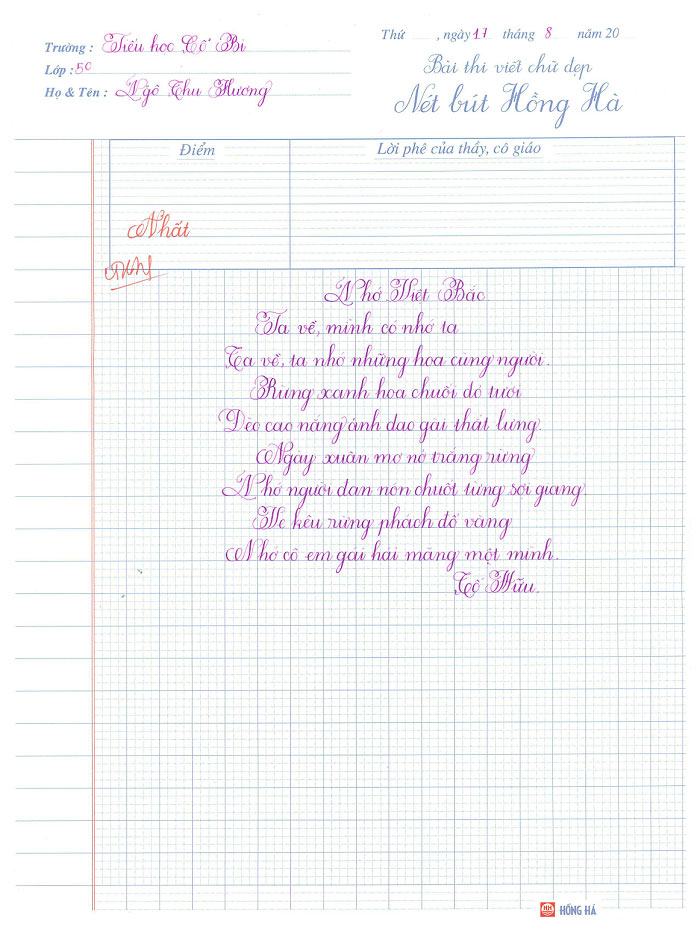 Trường : Tiểu học Cổ Bi
Lớp : 5C
Họ & Tên : Ngô Thu Hương
Thứ , ngày 17 tháng 8 năm 20
Bài thi viết chữ đẹp
Nét bút Hồng Hà
Điểm
Lời phê của thầy, cô giáo
Nhất
Nhớ Việt Bắc
Ta về, mình có nhớ ta
Ta về, ta nhớ những hoa cùng người.
Rừng xanh hoa chuối đỏ tươi
Đèo cao nắng ánh dao gài thắt lưng.
Ngày xuân mơ nở trắng rừng
Nhớ người đan nón chuốt từng sợi giang.
Ve kêu rừng phách đổ vàng
Nhớ cô em gái hái măng một mình.
Tố Hữu.
HỒNG HÀ